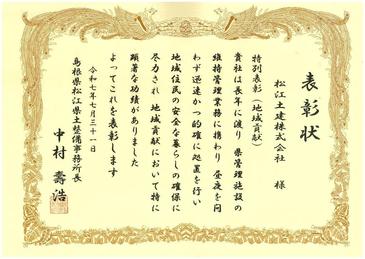 表彰状
松江土建株式会社 様
特別表彰（地域貢献）
貴社は長年に渡り 県管理施設の
維持管理業務に携わり 昼夜を問
わず迅速かつ的確に処置を行い
地域住民の安全な暮らしの確保に
尽力され 地域貢献において特に
顕著な功績がありました
よってこれを表彰します
令和七年七月三十一日
島根県松江県土整備事務所長
中村 壽浩